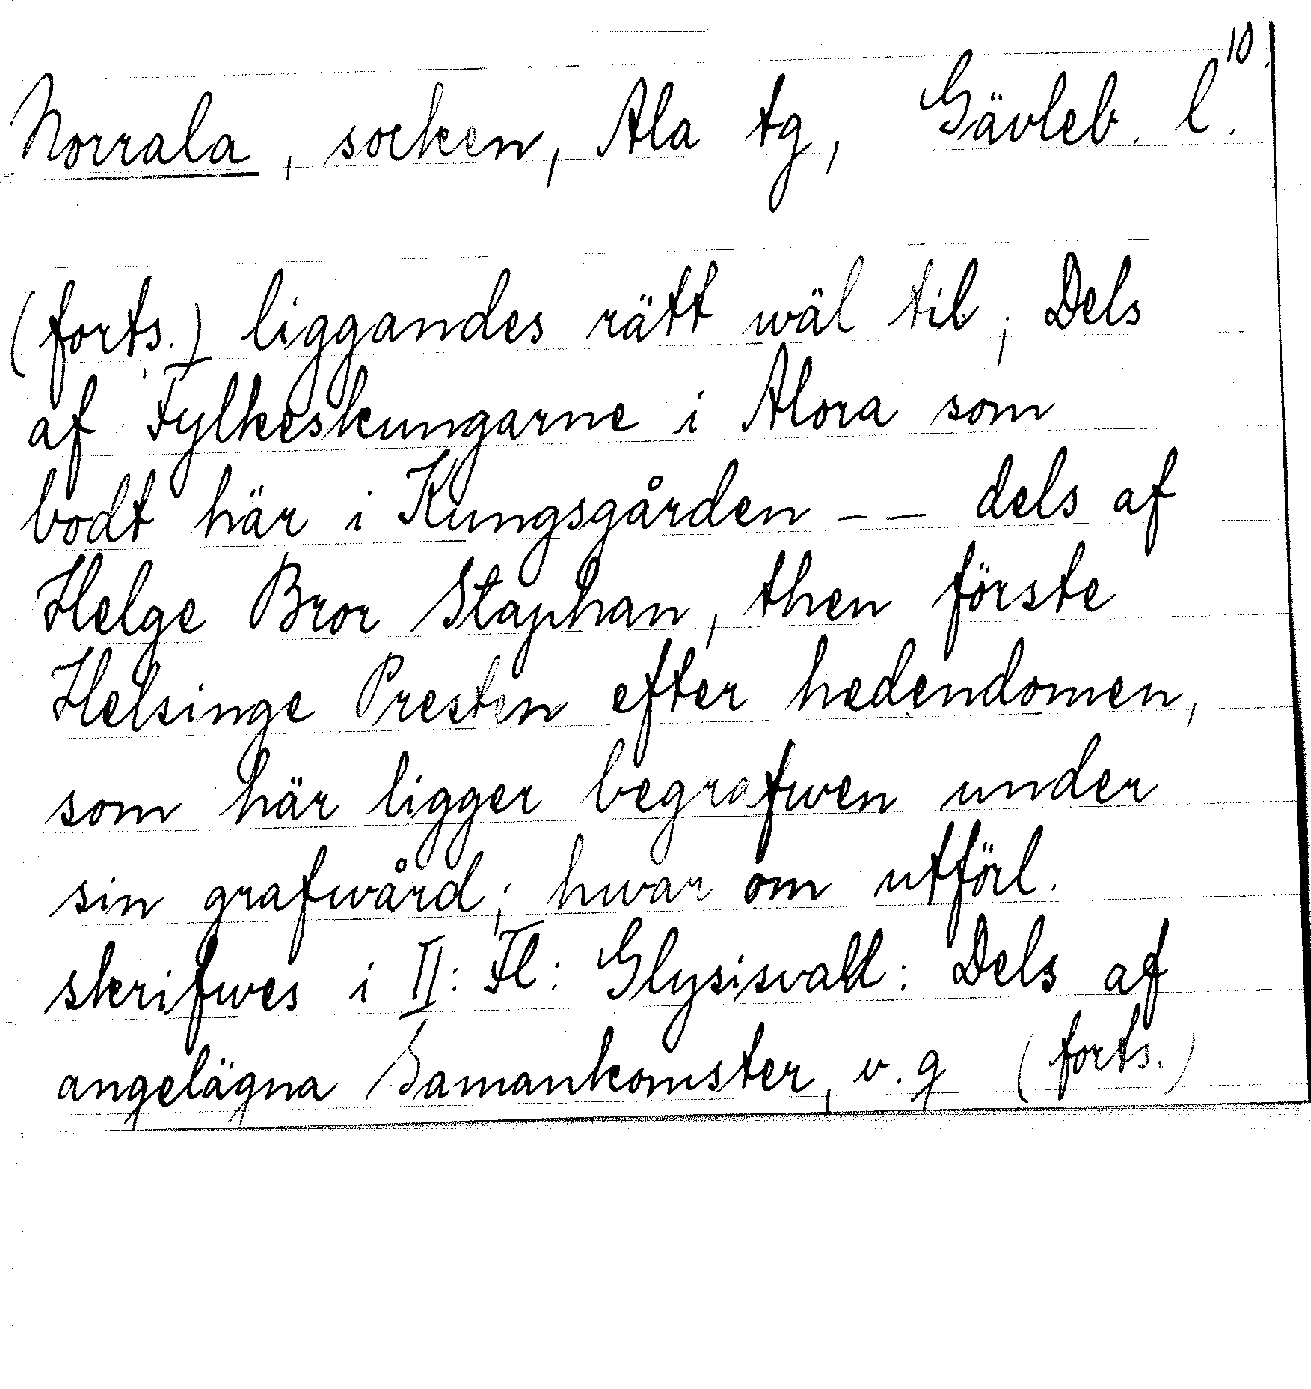 10.
Norrala, socken, Ala tg, Gävleb. l.
(forts.) liggandes rätt wäl til; Dels
af Fylkeskungarne i Alora som
bodt här i Kungsgården -- dels af
Helge Bror Staphan, then förste
Helsinge Presten efter hedendomen,
som här ligger begrafwen under
sin grafwård; hwar om utförl.
skrifwes i II: Fl: Glysisvall: Dels af
angelägna Samankomster, v. g (forts.)